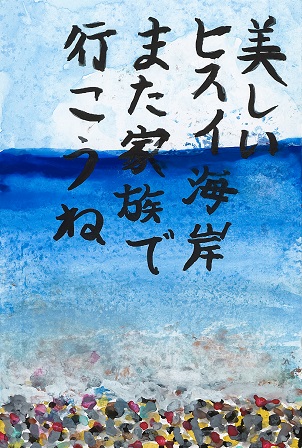 美しい
ヒスイ海岸
また家族で
行こうね